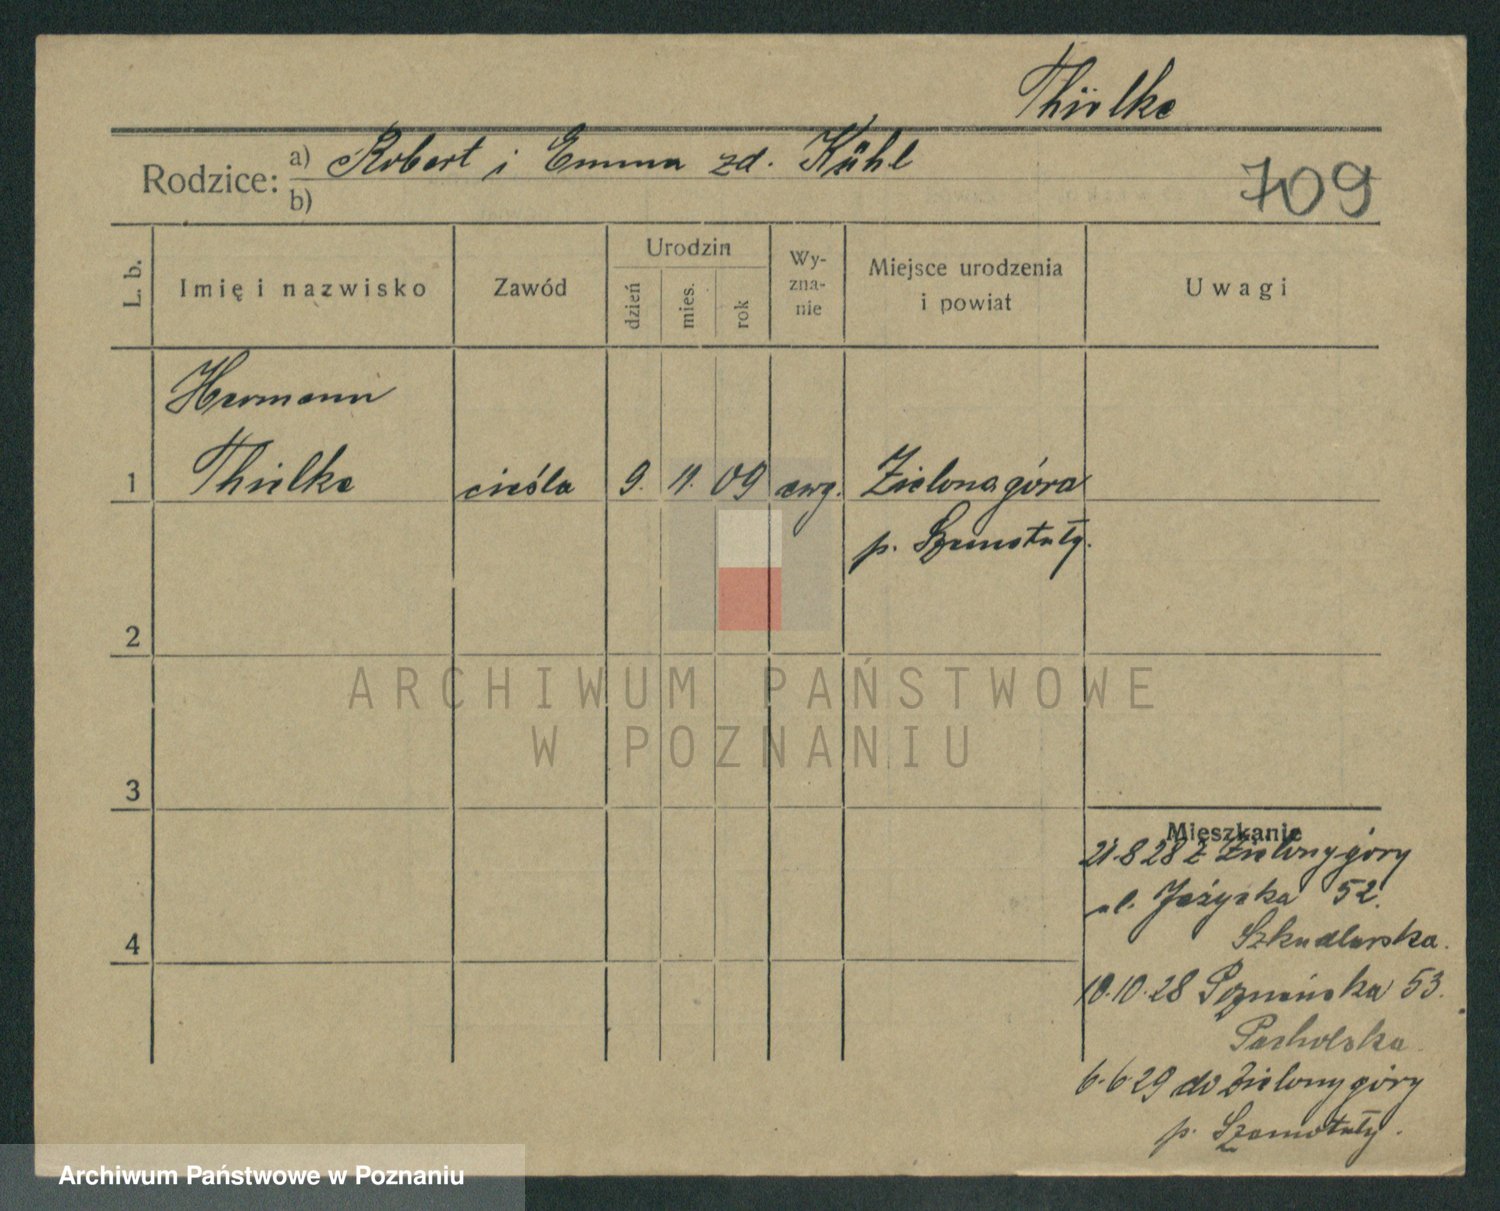 Thielke
Rodzice: a) Robert i Emma zd. Kühl
b)
709
L. b.
Imię i nazwisko
Zawód
Urodzin
dzień
mies.
rok
Wy-
zna-
nie
Miejsce urodzenia
i powiat
Uwagi
Hermann
1 Thielke cieśla 9. 11. 09 ewg. Zielonagóra
p. Szamotuły.
2
3
4
Mieszkanie
21.8 28 z Zielonygóry
ul. Jeżycka 52.
Szkudlarska.
10.10.28 Poznańska 53.
Pacholska.
6.6 29 do Zielonygóry
p. Szamotuły.
ARCHIWUM PAŃSTWOWE
W POZNANIU
Archiwum Państwowe w Poznaniu